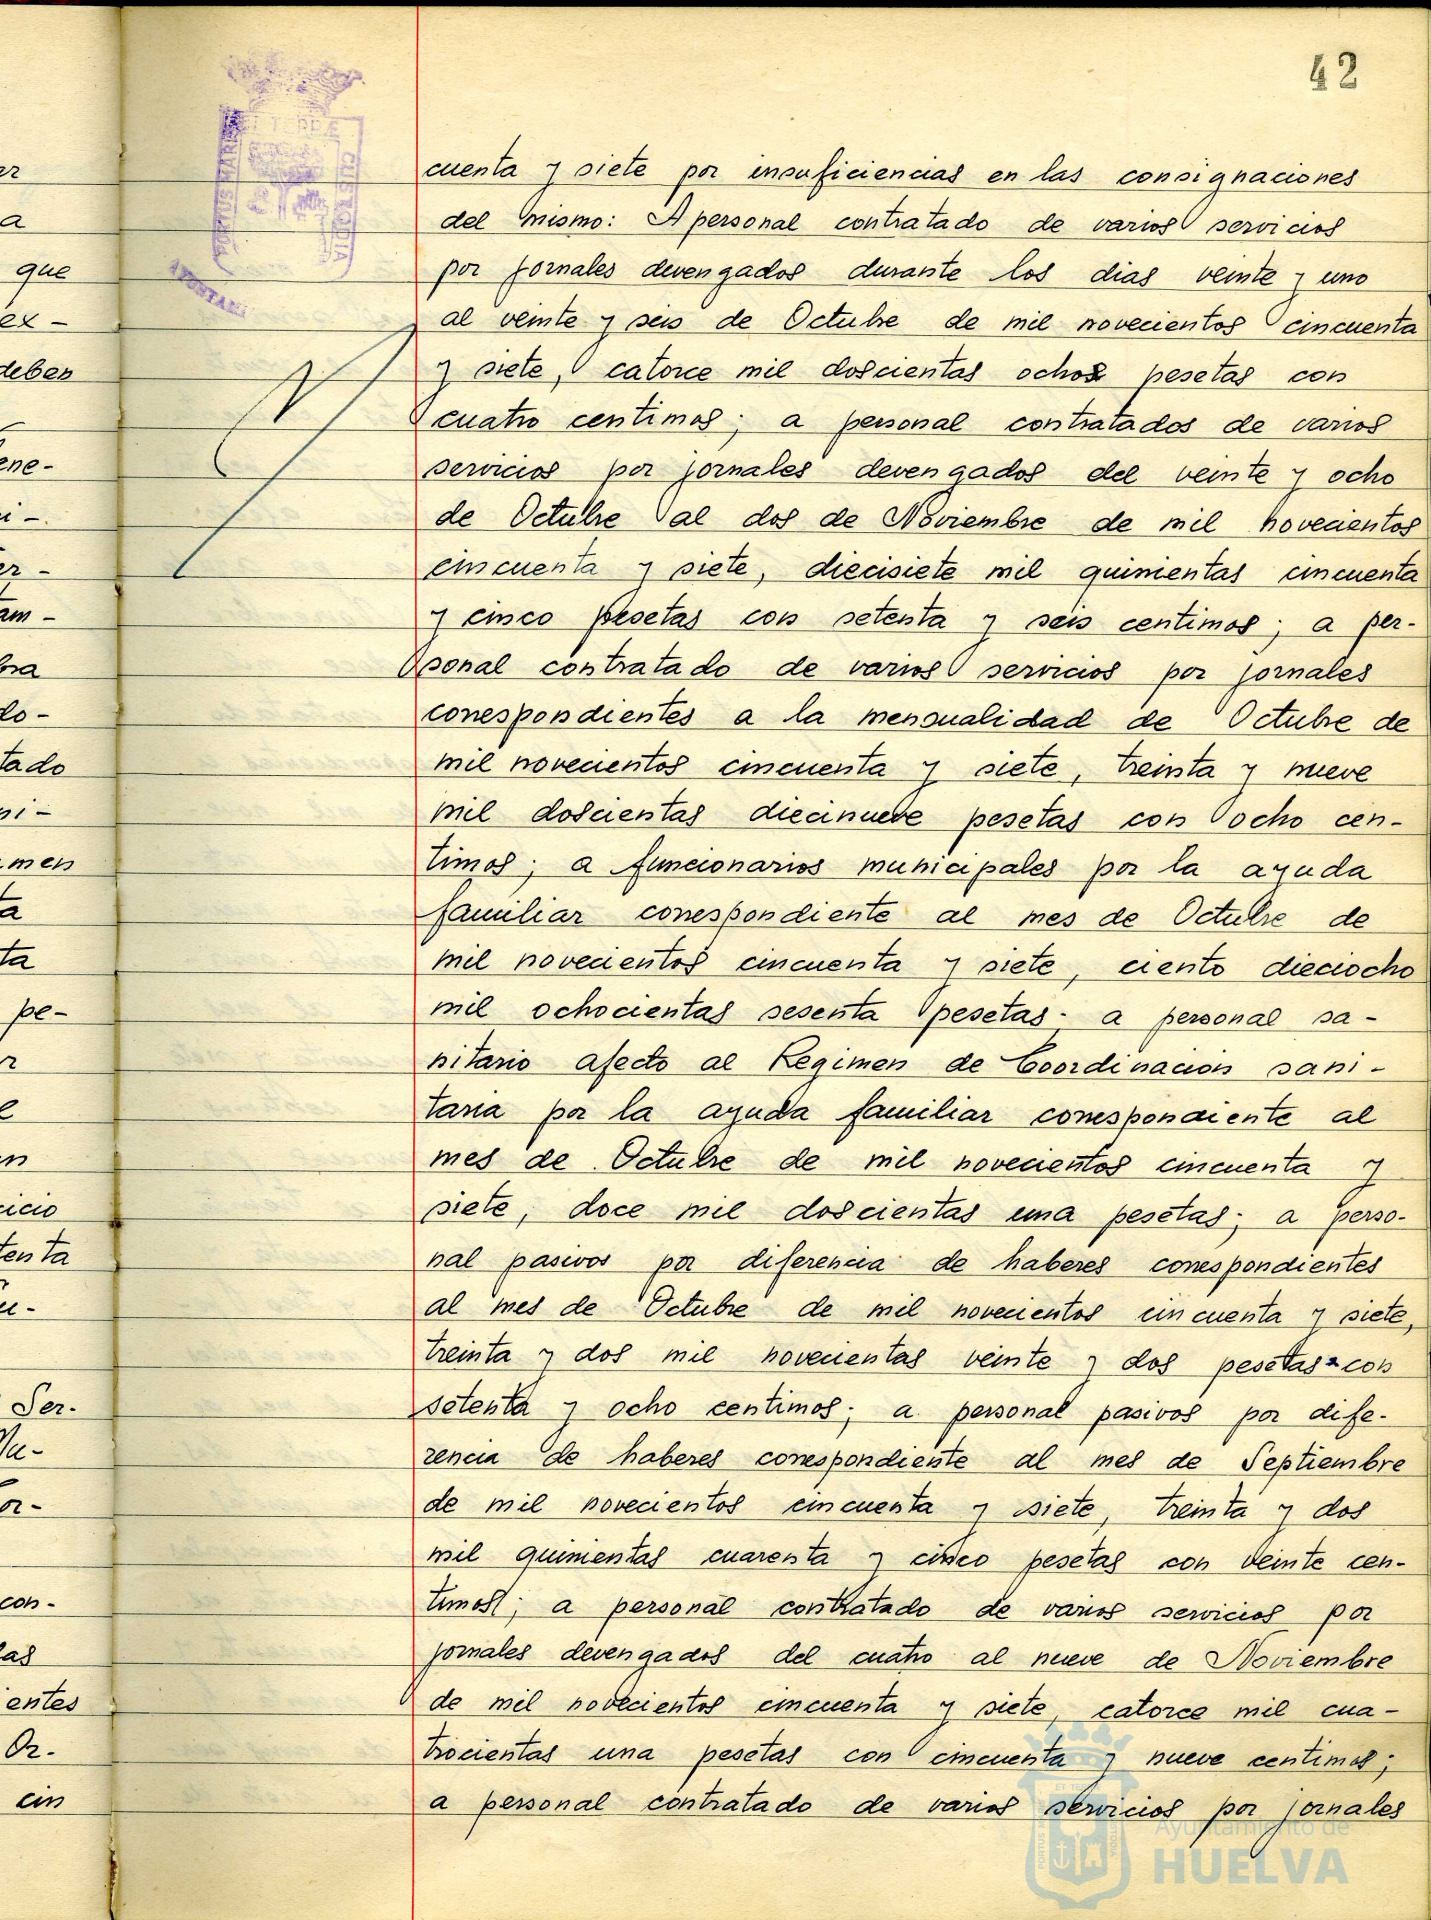 42
ET TERRÆ
PORTUS MARIS
CUSTODIA
AYUNTAM
er
a
que
ex-
deben
ene-
ni-
er-
tam-
bra
do-
tado
ni-
men
ta
ta
pe-
r
e
n
cicio
tenta
Ser-
Mu-
or-
con-
las
ientes
Or-
cin
cuenta y siete por insuficiencias en las consignaciones
del mismo: A personal contratado de varios servicios
por jornales devengados durante los dias veinte y uno
al veinte y seis de Octubre de mil novecientos cincuenta
y siete, catorce mil doscientas ochos pesetas con
cuatro centimos; a personal contratados de varios
servicios por jornales devengados del veinte y ocho
de Octubre al dos de Noviembre de mil novecientos
cincuenta y siete, diecisiete mil quinientas cincuenta
y cinco pesetas con setenta y seis centimos; a per-
sonal contratado de varios servicios por jornales
correspondientes a la mensualidad de Octubre de
mil novecientos cincuenta y siete, treinta y nueve
mil doscientas diecinueve pesetas con ocho cen-
timos; a funcionarios municipales por la ayuda
familiar correspondiente al mes de Octubre de
mil novecientos cincuenta y siete, ciento dieciocho
mil ochocientas sesenta pesetas; a personal sa-
nitario afecto al Regimen de Coordinacion sani-
taria por la ayuda familiar correspondiente al
mes de Octubre de mil novecientos cincuenta y
siete, doce mil doscientas una pesetas; a perso-
nal pasivos por diferencia de haberes correspondientes
al mes de Octubre de mil novecientos cincuenta y siete,
treinta y dos mil novecientas veinte y dos pesetas con
setenta y ocho centimos; a personal pasivos por dife-
rencia de haberes correspondiente al mes de Septiembre
de mil novecientos cincuenta y siete, treinta y dos
mil quinientas cuarenta y cinco pesetas con veinte cen-
timos; a personal contratado de varios servicios por
jornales devengados del cuatro al nueve de Noviembre
de mil novecientos cincuenta y siete, catorce mil cua-
trocientas una pesetas con cincuenta y nueve centimos;
a personal contratado de varios servicios por jornales
Ayuntamiento de
HUELVA